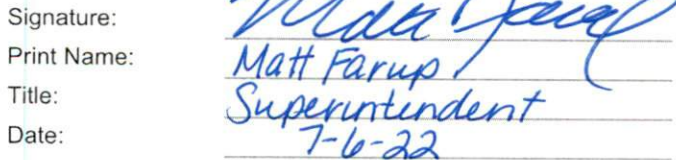 Signature: Matt Farup
Print Name: Matt Farup
Title: Superintendent
Date: 7-6-22